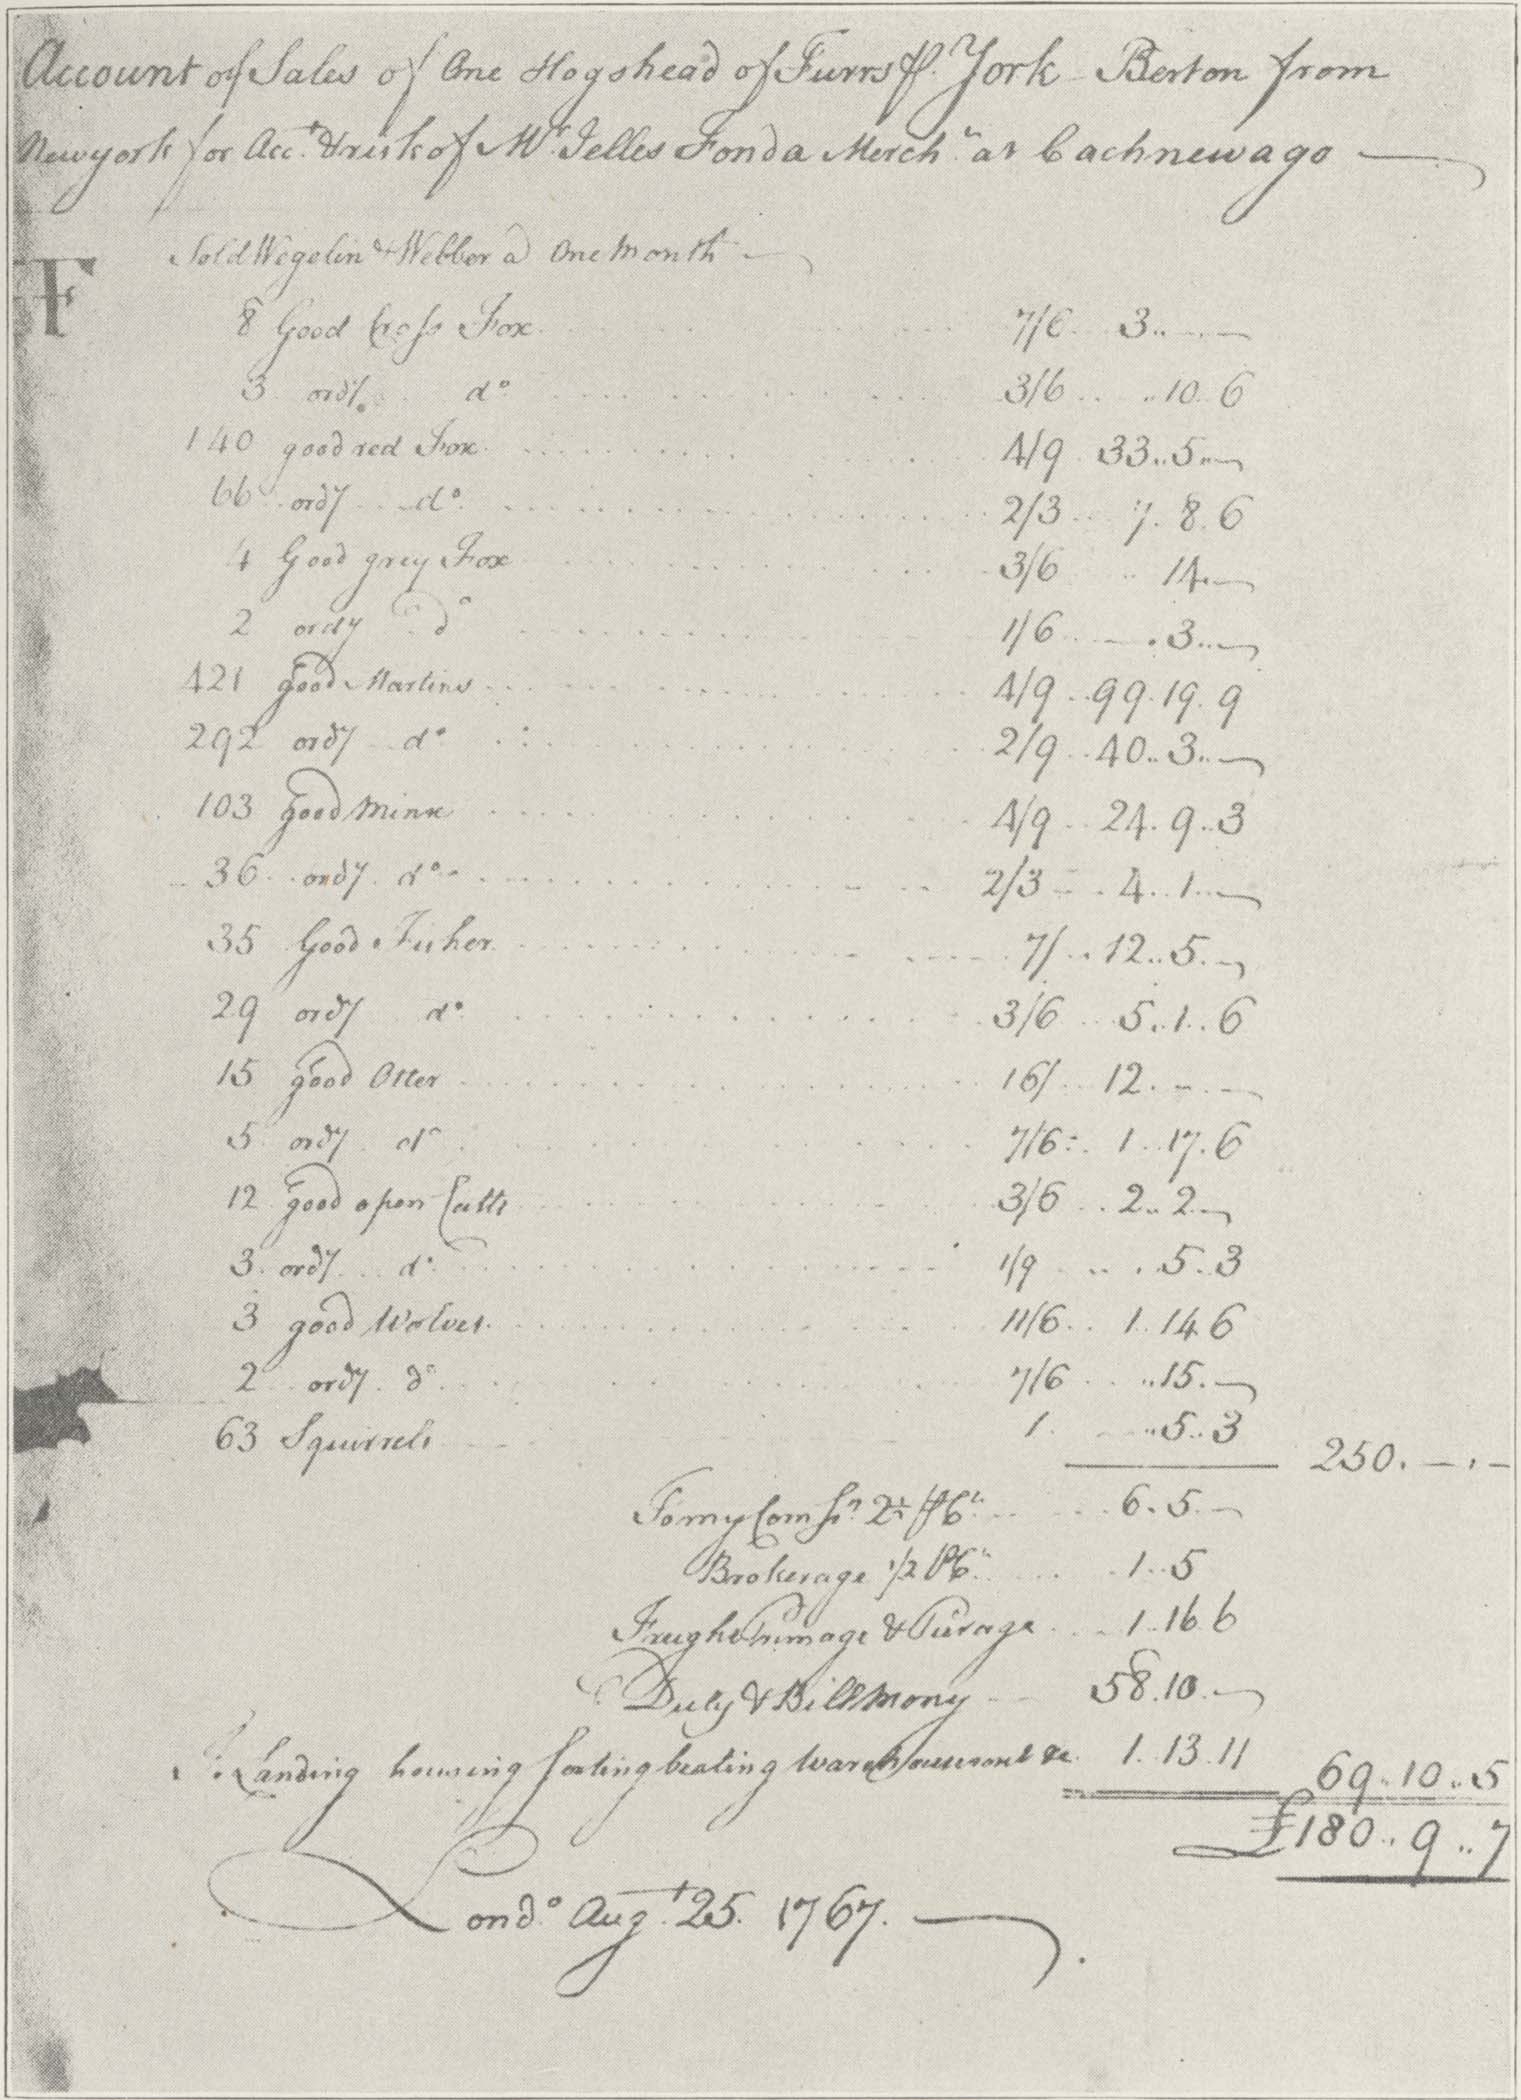 Account of Sales of One Hogshead of Furrs ⅌ York Berton from
Newyork for Acct. & risk of Mr. Jelles Fonda Merchn. at Cachnewago
F
Sold Wegelin & Webber a One Month
8 Good Cross Fox 7/6 3..—
3 ordy. do 3/6 ..10..6
140 good red Fox 4/9 33..5..—
66 ordy do 2/3 7.8.6
4 Good grey Fox 3/6 ..14.—
2 ordy do 1/6 .3..—
421 good Martins 4/9 99.19.9
292 ordy do 2/9 40..3..—
103 good Minx 4/9 24.9..3
36 ordy do 2/3 4..1..—
35 Good Fisher 7/ 12..5.—
29 ordy do 3/6 5..1..6
15 good Otter 16/ 12.—
5 ordy do 7/6 1..17.6
12 good open Catts 3/6 2..2—
3 ordy do 1/9 .5..3
3 good Wolves 11/6 1.14.6
2 ordy do 7/6 ..15.—
63 Squirrels 1 ..5..3 250.—.—
To my Comssn. 2½ ⅌ Ct. 6.5.—
Brokerage 1/2 ⅌ Ct. 1..5
Freught Primage & 1..16.6
Duty & Bill Mony 58.10.—
Landing housing beating &c. 1..13.11 69..10..5
£180..9..7
Londo. Augt. 25. 1767.